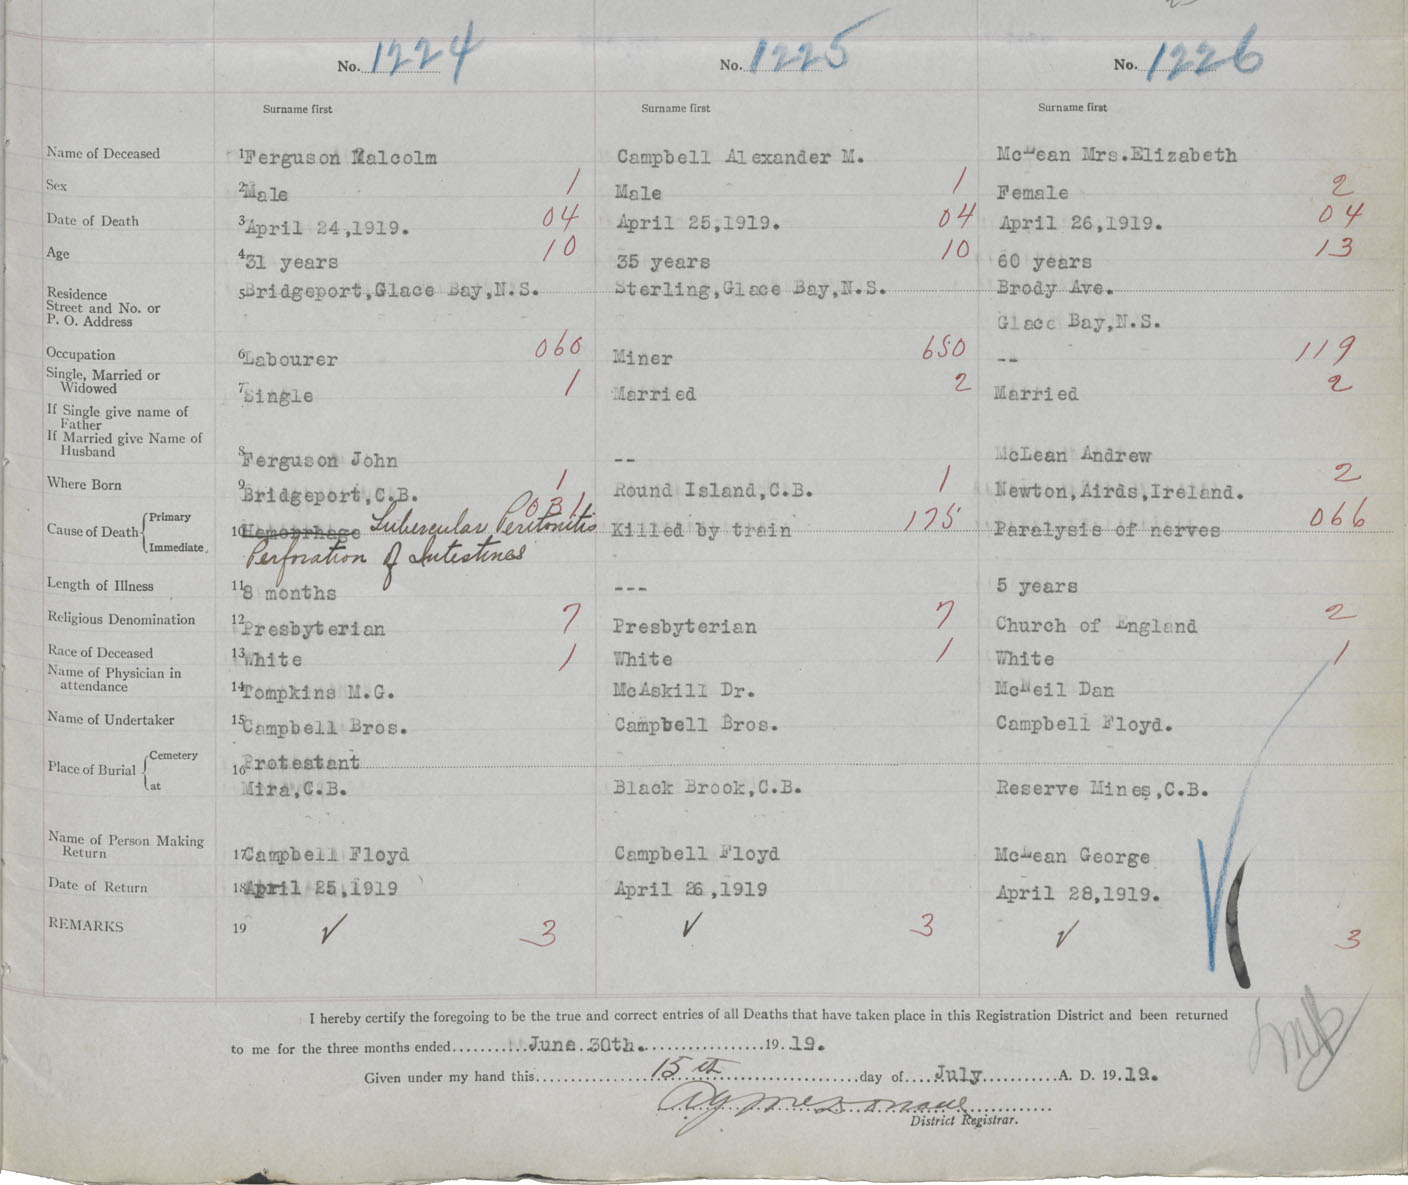 No. 1224 No. 1225 No. 1226
Surname first Surname first Surname first
Name of Deceased 1 Ferguson Malcolm Campbell Alexander M. McLean Mrs.Elizabeth
Sex 2 Male 1 Male 1 Female 2
Date of Death 3 April 24,1919. 04 April 25,1919. 04 April 26,1919. 04
Age 4 31 years 10 35 years 10 60 years 13
Residence 5 Bridgeport,Glace Bay,N.S. Sterling,Glace Bay,N.S. Brody Ave.
Street and No. or
P. O. Address Glace Bay,N.S.
Occupation 6 Labourer 060 Miner 650 -- 119
Single, Married or
Widowed 7 Single 1 Married 2 Married 2
If Single give name of
Father
If Married give Name of
Husband 8 Ferguson John -- McLean Andrew
Where Born 9 Bridgeport,C.B. 1 Round Island,C.B. 1 Newton,Airds,Ireland. 2
Cause of Death { Primary 10 Hemorrhage Tubercular Peritonitis 031 Killed by train 175 Paralysis of nerves 066
Immediate, Perforation of Intestines
Length of Illness 11 8 months --- 5 years
Religious Denomination 12 Presbyterian 7 Presbyterian 7 Church of England 2
Race of Deceased 13 White 1 White 1 White 1
Name of Physician in
attendance 14 Tompkins M.G. McAskill Dr. McNeil Dan
Name of Undertaker 15 Campbell Bros. Campbell Bros. Campbell Floyd.
Place of Burial { Cemetery 16 Protestant
at Mira,C.B. Black Brook,C.B. Reserve Mines,C.B.
Name of Person Making
Return 17 Campbell Floyd Campbell Floyd McLean George
Date of Return 18 April 25,1919 April 26,1919 April 28,1919.
REMARKS 19 ✓ 3 ✓ 3 ✓ 3
I hereby certify the foregoing to be the true and correct entries of all Deaths that have taken place in this Registration District and been returned
to me for the three months ended June 30th. 19 19.
Given under my hand this 15th day of July A. D. 19 19.
District Registrar.